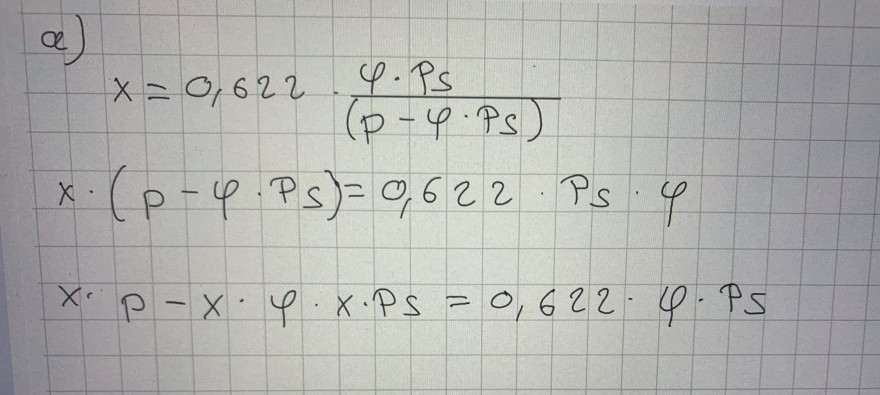 a)
x = 0,622 · φ · Ps / (p - φ · Ps)
x · (p - φ · Ps) = 0,622 · Ps · φ
x · p - x · φ · x · Ps = 0,622 · φ · Ps